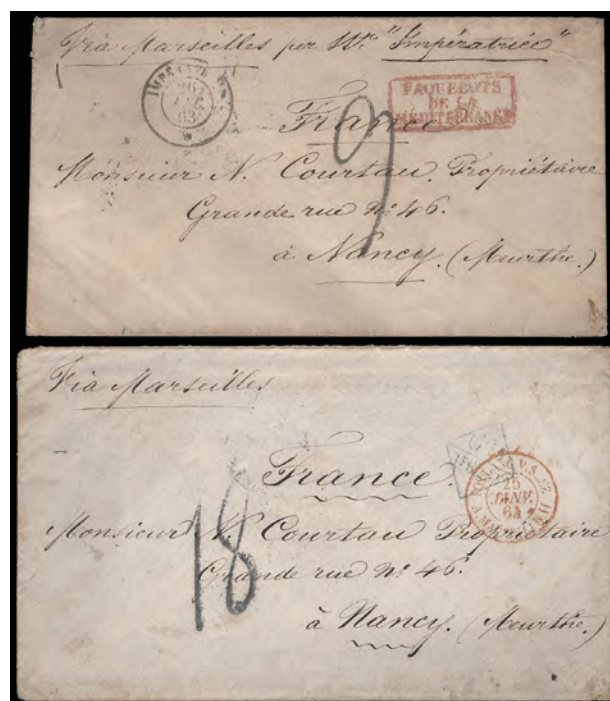 Via Marseilles per Str. "Impératrice"
IMPÉRATRICE
26
63
PAQUEBOTS
DE LA
MÉDITERRANÉE
France
9
Monsieur N. Courtau, Propriétaire
Grande rue No. 46.
à Nancy. (Meurthe.)
Via Marseilles
France
25
JANV.
64
18
Monsieur N. Courtau Propriétaire
Grande rue No. 46.
à Nancy. (Meurthe.)